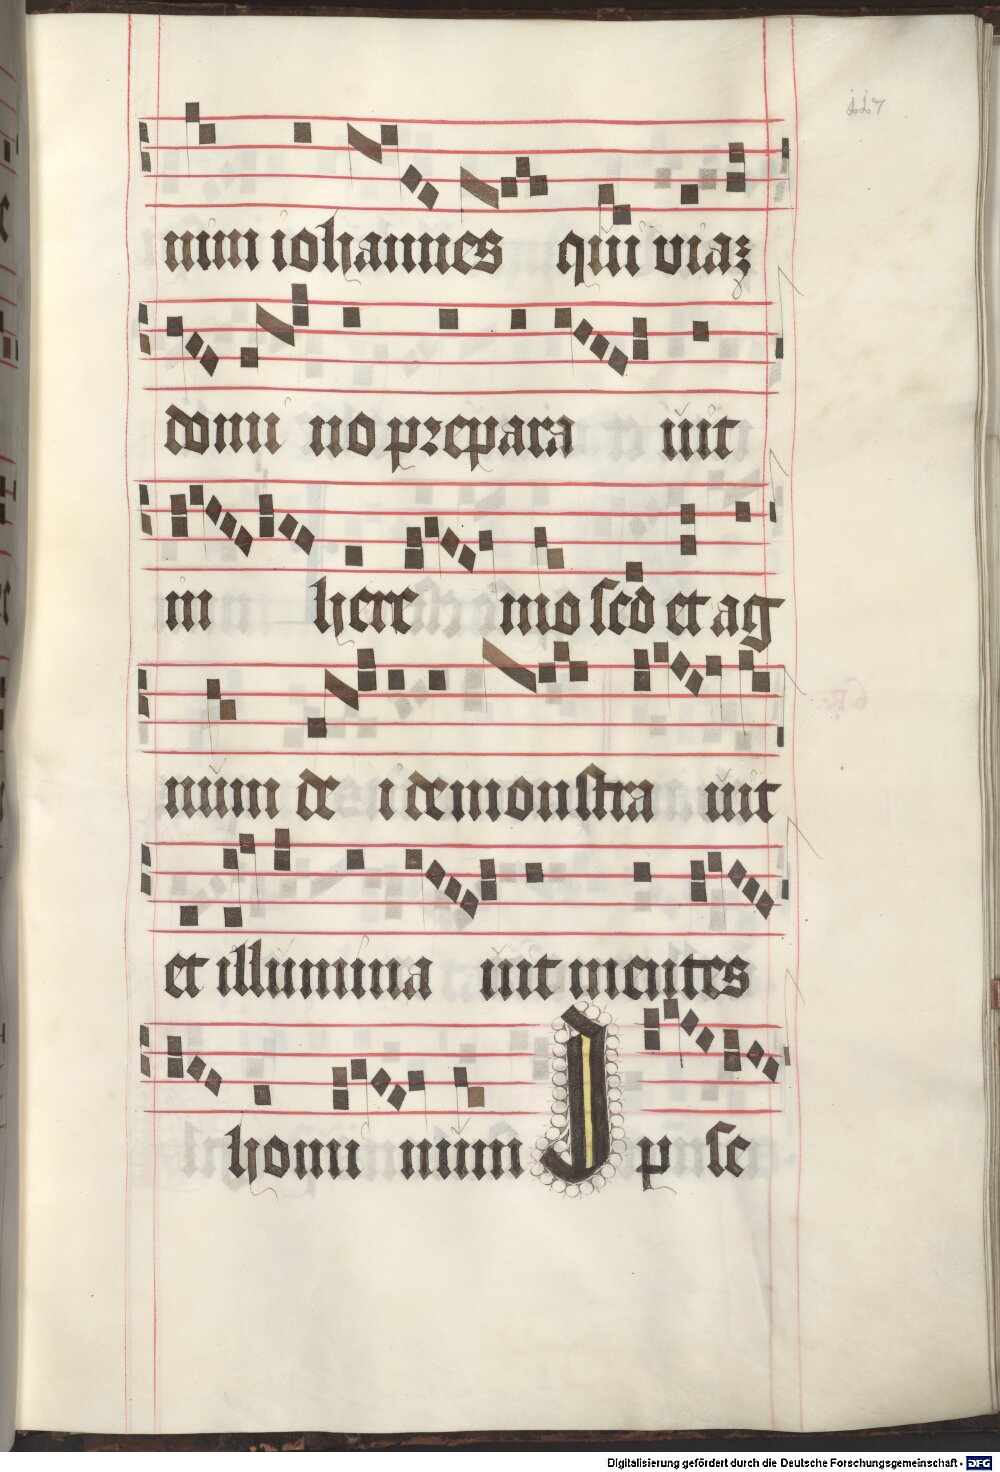 117
nnm iohannes qui viaꝫ
domi no prepara uit
in here mo sed et ag
num de i demonstra uit
et illumina uit mentes
homi num Ip se
Digitalisierung gefördert durch die Deutsche Forschungsgemeinschaft - DFG